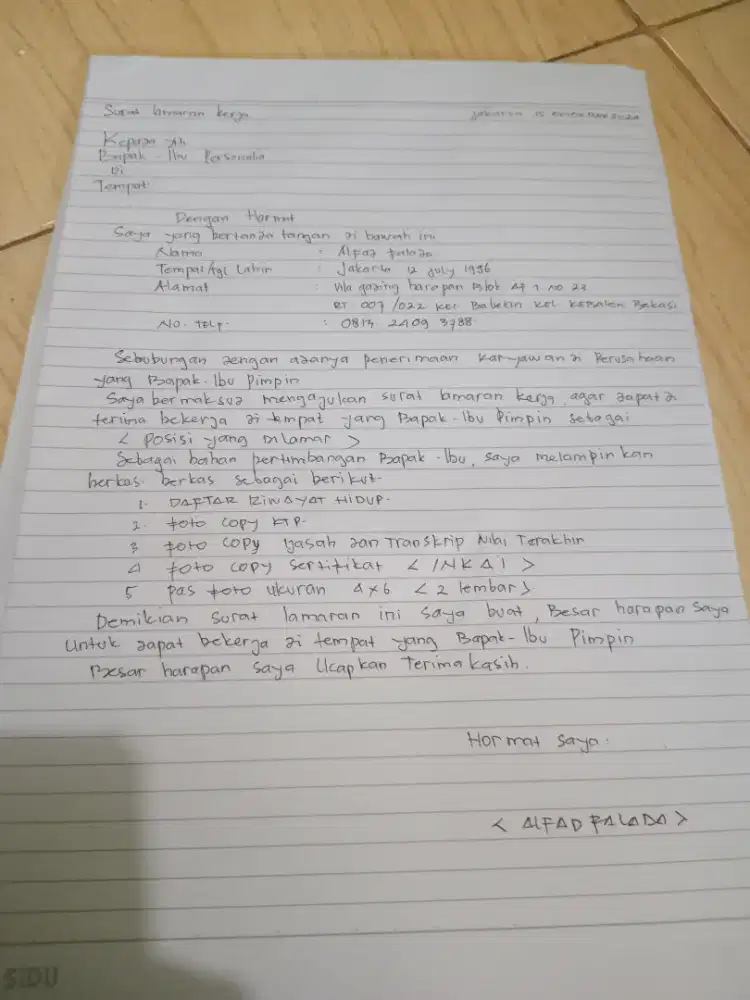 Surat lamaran kerja Jakarta 15
Kepada Yth
Bapak - Ibu Personalia
Di
Tempat
Dengan Hormat
Saya yang bertanda tangan di bawah ini
Nama : Alfad falada
Tempat/tgl Lahir : Jakarta 12 July 1996
Alamat : Vila gading harapan Blok A7 1 no 23
RT 007/022 kec Babelan kel KEBALEN Bekasi
NO. TELP. : 0813 2409 3788
Sehubungan dengan adanya penerimaan karyawan di Perusahaan
yang Bapak-Ibu Pimpin
Saya bermaksud mengajukan surat lamaran kerja, agar dapat di
terima bekerja di tempat yang Bapak-Ibu Pimpin sebagai
< Posisi yang Dilamar >
Sebagai bahan pertimbangan Bapak-Ibu, saya melampirkan
berkas-berkas sebagai berikut.
1. DAFTAR RIWAYAT HIDUP.
2. foto copy KTP.
3 foto copy Ijasah dan Transkrip Nilai Terakhir
4 foto copy sertifikat < INKAI >
5 pas foto ukuran 4x6 < 2 lembar >
Demikian surat lamaran ini saya buat, Besar harapan saya
Untuk dapat bekerja di tempat yang Bapak-Ibu Pimpin
Besar harapan saya Ucapkan Terima kasih.
Hormat saya.
< ALFAD FALADA >
SIDU